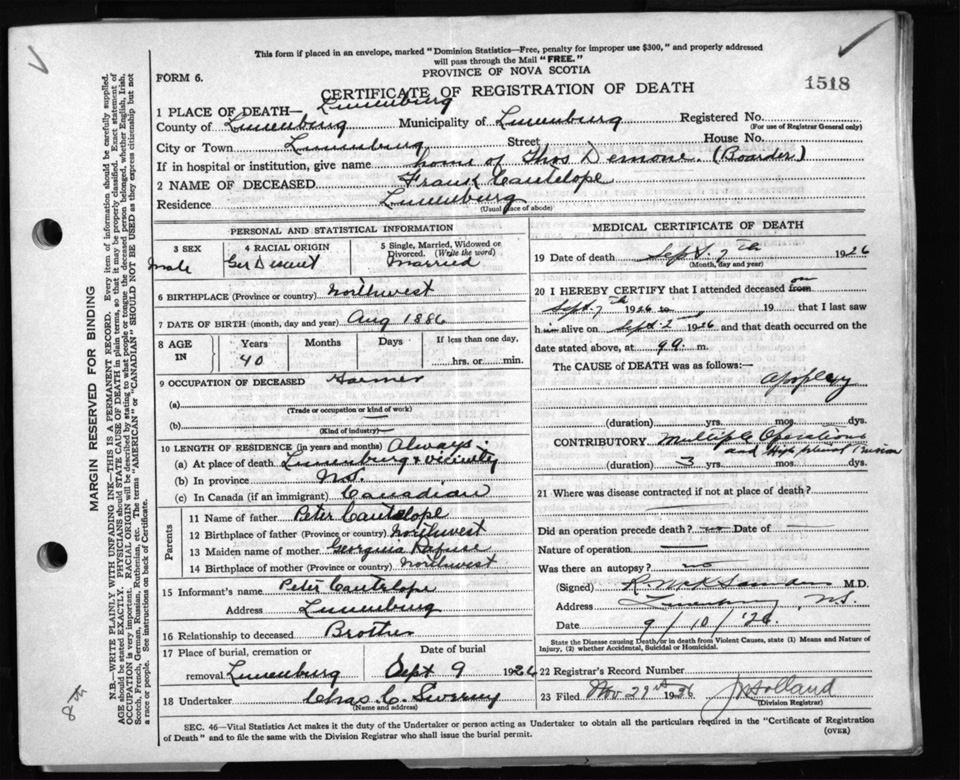 This form if placed in an envelope, marked "Dominion Statistics—Free, penalty for improper use $300," and properly addressed
will pass through the Mail "FREE."
FORM 6.
PROVINCE OF NOVA SCOTIA
CERTIFICATE OF REGISTRATION OF DEATH
1518
1 PLACE OF DEATH— Lunenburg
County of Lunenburg Municipality of Lunenburg Registered No.
(For use of Registrar General only)
City or Town Lunenburg Street House No.
If in hospital or institution, give name home of Thos Demone (Boarder)
2 NAME OF DECEASED Frank Cantelope
Residence Lunenburg
(Usual place of abode)
PERSONAL AND STATISTICAL INFORMATION
3 SEX Male
4 RACIAL ORIGIN Ger Descent
5 Single, Married, Widowed or
Divorced. (Write the word)
Married
6 BIRTHPLACE (Province or country) Northwest
7 DATE OF BIRTH (month, day and year) Aug 1886
8 AGE IN Years 40 Months Days If less than one day,
hrs. or min.
9 OCCUPATION OF DECEASED Farmer
(a)
(Trade or occupation or kind of work)
(b)
(Kind of industry)
10 LENGTH OF RESIDENCE (in years and months) Always
(a) At place of death Lunenburg & vicinity
(b) In province N.S.
(c) In Canada (if an immigrant) Canadian
Parents
11 Name of father Peter Cantelope
12 Birthplace of father (Province or country) Northwest
13 Maiden name of mother Georgina Rafuse
14 Birthplace of mother (Province or country) Northwest
15 Informant's name Peter Cantelope
Address Lunenburg
16 Relationship to deceased Brother
17 Place of burial, cremation or
removal Lunenburg
Date of burial
Sept 9 1926
18 Undertaker Chas. C. Sweeny
(Name and address)
MEDICAL CERTIFICATE OF DEATH
19 Date of death Sept. 7th 1926
(Month, day and year)
20 I HEREBY CERTIFY that I attended deceased from on
Sept. 7th 1926 to 19 that I last saw
him alive on Sept. 2nd 1926 and that death occurred on the
date stated above, at 9 a. m.
The CAUSE OF DEATH was as follows:—
Apoplexy
(duration) yrs. mos. dys.
CONTRIBUTORY Multiple Operations
and High blood Tension
(duration) 3 yrs. mos. dys.
21 Where was disease contracted if not at place of death?
Did an operation precede death? no Date of
Nature of operation
Was there an autopsy? no
(Signed) M.D.
Address Lunenburg N.S.
Date 9/10/'26
State the Disease causing Death/or in death from Violent Causes, state (1) Means and Nature of
Injury, (2) whether Accidental, Suicidal or Homicidal.
22 Registrar's Record Number
23 Filed Nov 1926 Holland
(Division Registrar)
SEC. 46—Vital Statistics Act makes it the duty of the Undertaker or person acting as Undertaker to obtain all the particulars required in the "Certificate of Registration
of Death" and to file the same with the Division Registrar who shall issue the burial permit.
(OVER)
MARGIN RESERVED FOR BINDING
N.B.—WRITE PLAINLY WITH UNFADING INK—THIS IS A PERMANENT RECORD. Every item of information should be carefully supplied.
AGE should be stated EXACTLY. PHYSICIANS should STATE CAUSE OF DEATH in plain terms, so that it may be properly classified. Exact statement of
OCCUPATION is very important. RACIAL ORIGIN will be described by stating to what people or tongue the deceased person belonged, whether English, Irish,
Scotch, French, German, Russian, Ruthenian, etc. The terms "AMERICAN" or "CANADIAN" SHOULD NOT BE USED as they express citizenship but not
a race or people. See instructions on back of Certificate.
8th